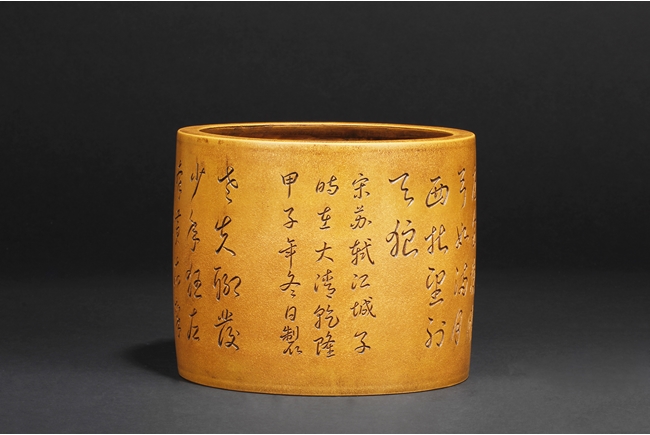 弓如滿月
西北望射
天狼
宋苏軾江城子
時在大清乾隆
甲子年冬日製
老夫聊發
少年狂左